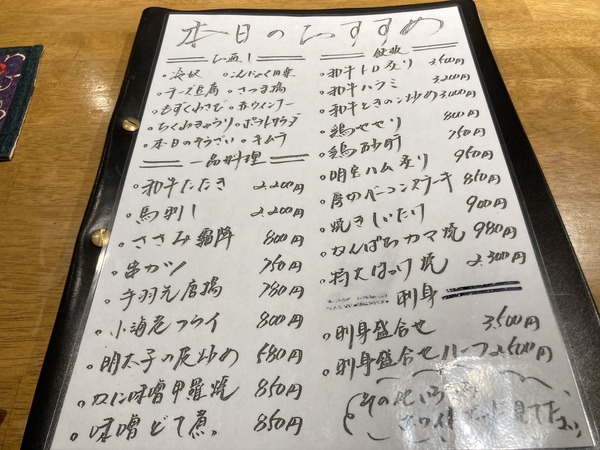 本日のおすすめ
お通し
・冷奴 ・こんにゃく田楽
・チーズ豆腐 ・さつま揚
・もずくわさび ・赤ウインナー
・ちくわきゅうり ・ポテトサラダ
・本日のそうざい ・キムチ
一品料理
・和牛たたき 2.200円
・馬刺し 2.200円
・ささみ霜降 800円
・串カツ 750円
・手羽元唐揚 780円
・小海老フライ 800円
・明太子の皮炒め 580円
・かに味噌甲羅焼 850円
・味噌どて煮 850円
鉄板
・和牛トロ炙り 3.500円
・和牛ハラミ 3.200円
・和牛ときのこ炒め 3.000円
・鶏せせり 800円
・鶏砂肝 750円
・明宝ハム炙り 950円
・厚切ベーコンステーキ 850円
・焼きしいたけ 900円
・かんぱちカマ焼 980円
・特大ほっけ焼 2.300円
刺身
・刺身盛合せ 3.500円
・刺身盛合せハーフ 2.500円
その他
ホワイトボード見て下さい